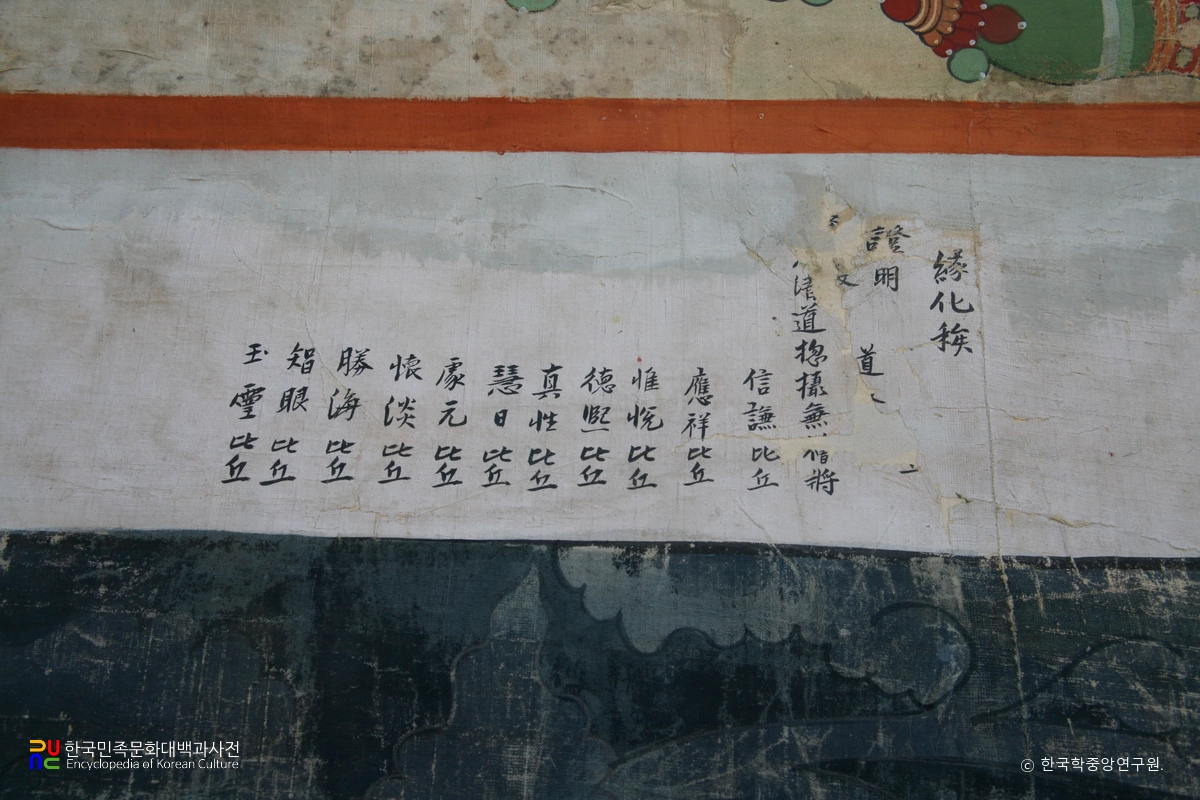 緣化秩
證明 道
道揔攝無 將
信謙比丘
應祥比丘
惟悅比丘
德熙比丘
真性比丘
慧日比丘
處元比丘
懷淡比丘
勝海比丘
智眼比丘
玉靈比丘
한국민족문화대백과사전
Encyclopedia of Korean Culture
© 한국학중앙연구원.